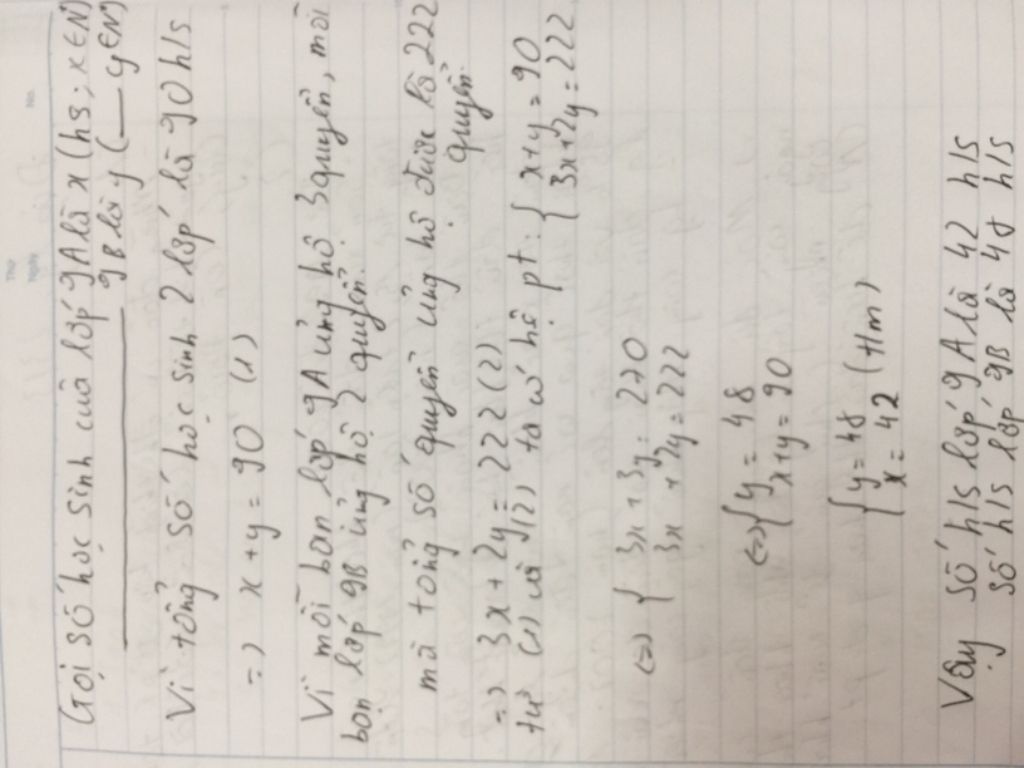 Gọi số học sinh của lớp 9A là x (hs; x ∈ N)
9B là y ( — y ∈ N)
Vì tổng số học sinh 2 lớp là 90 h/s
=) x + y = 90 (1)
Vì mỗi bạn lớp 9A ủng hộ 3 quyển, mỗi
bạn lớp 9B ủng hộ 2 quyển.
mà tổng số quyển ủng hộ được là 222
quyển.
=) 3x + 2y = 222 (2)
từ (1) và (2) ta có hệ pt: { x+y = 90
3x+2y = 222
(=) { 3x + 3y = 270
3x + 2y = 222
(=) { y = 48
x+y = 90
{ y = 48 (tm)
x = 42
Vậy số h/s lớp 9A là 42 h/s
số h/s lớp 9B là 48 h/s
Thứ
Ngày
No.